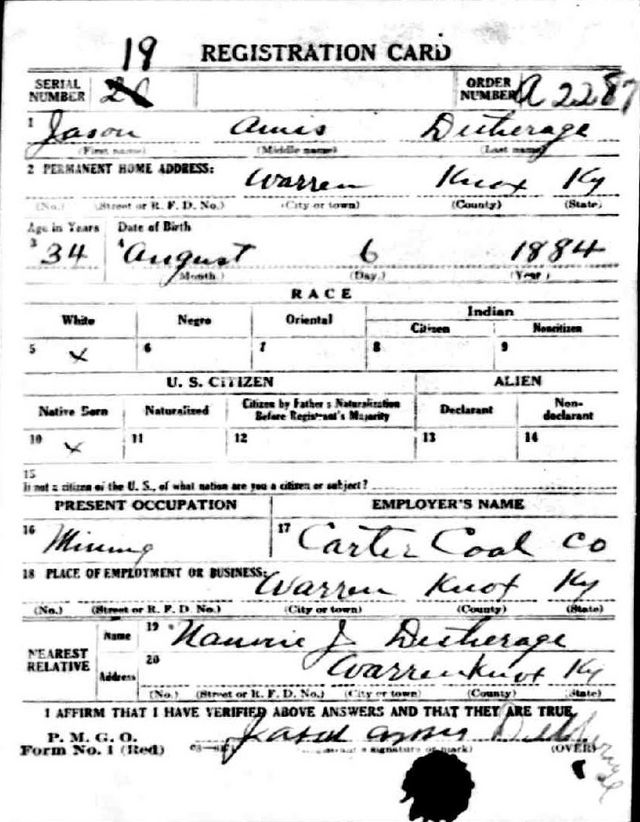 19 REGISTRATION CARD
SERIAL NUMBER ORDER NUMBER A 2287
1 Jason Amis Detherage
(First name) (Middle name) (Last name)
2 PERMANENT HOME ADDRESS: Warren Knox Ky
(No.) (Street or R. F. D. No.) (City or town) (County) (State)
Age in Years Date of Birth
3 34 4 August 6 1884
(Month.) (Day.) (Year.)
RACE
White Negro Oriental Indian
Citizen Noncitizen
5 x 6 7 8 9
U. S. CITIZEN ALIEN
Native Born Naturalized Citizen by Father's Naturalization Before Registrant's Majority Declarant Non-declarant
10 x 11 12 13 14
15
If not a citizen of the U. S., of what nation are you a citizen or subject?
PRESENT OCCUPATION EMPLOYER'S NAME
16 Mining 17 Carter Coal Co
18 PLACE OF EMPLOYMENT OR BUSINESS: Warren Knox Ky
(No.) (Street or R. F. D. No.) (City or town) (County) (State)
NEAREST RELATIVE Name 19 Nannie J Detherage
Address 20 Warren Knox Ky
(No.) (Street or R. F. D. No.) (City or town) (County) (State)
I AFFIRM THAT I HAVE VERIFIED ABOVE ANSWERS AND THAT THEY ARE TRUE
P. M. G. O.
Form No. 1 (Red) (Registrant's signature or mark) (OVER)